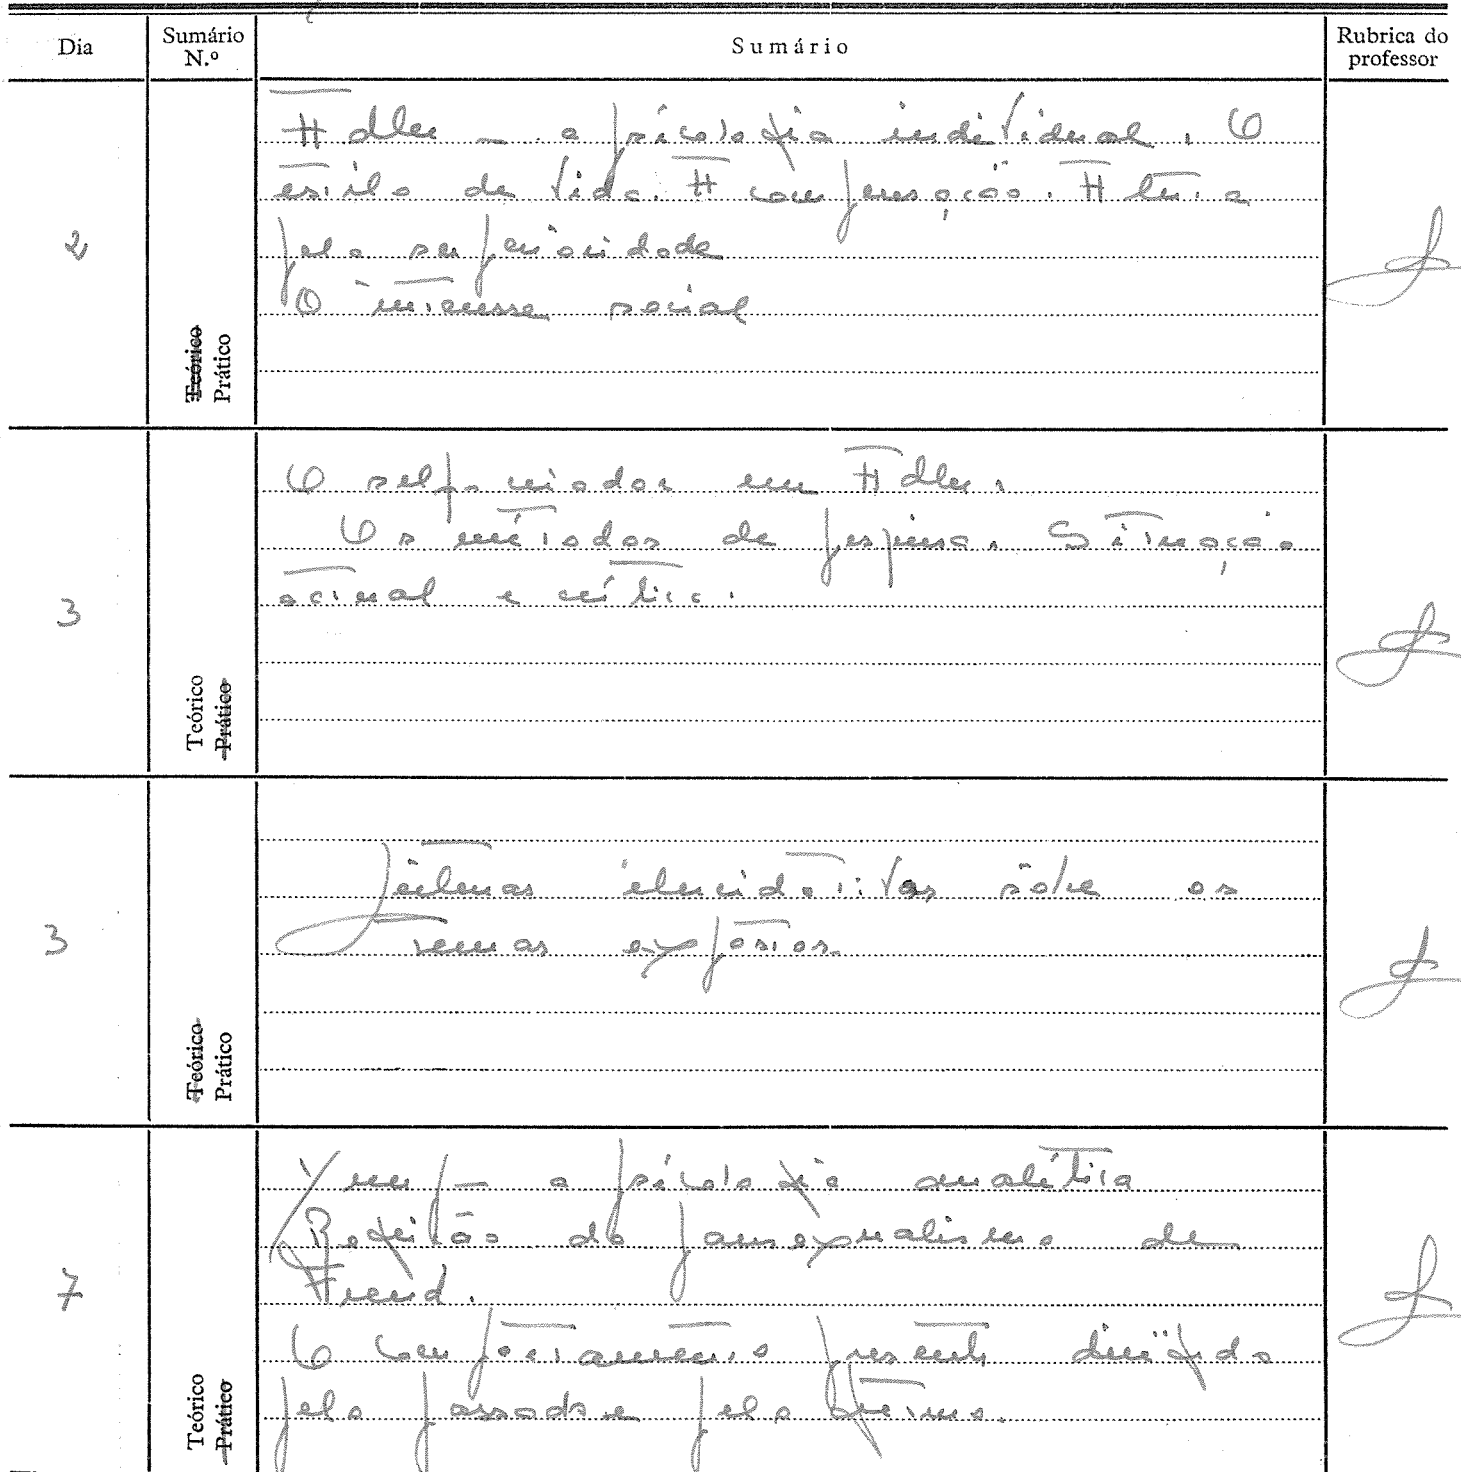 Dia
Sumário N.º
Sumário
Rubrica do professor
2
Teórico
Prático
Adler – a psicologia individual. O
estilo de vida. A compensação. A luta
pela superioridade
O interesse social
3
Teórico
Prático
O self criador em Adler.
Os métodos de pesquisa. Situação
actual e crítica.
3
Teórico
Prático
Leituras elucidativas sôbre os
temas expostos.
7
Teórico
Prático
Yung – a psicologia analítica
Rejeição do pansexualismo de
Freud.
O comportamento presente dirigido
pelo passado e pelo futuro.